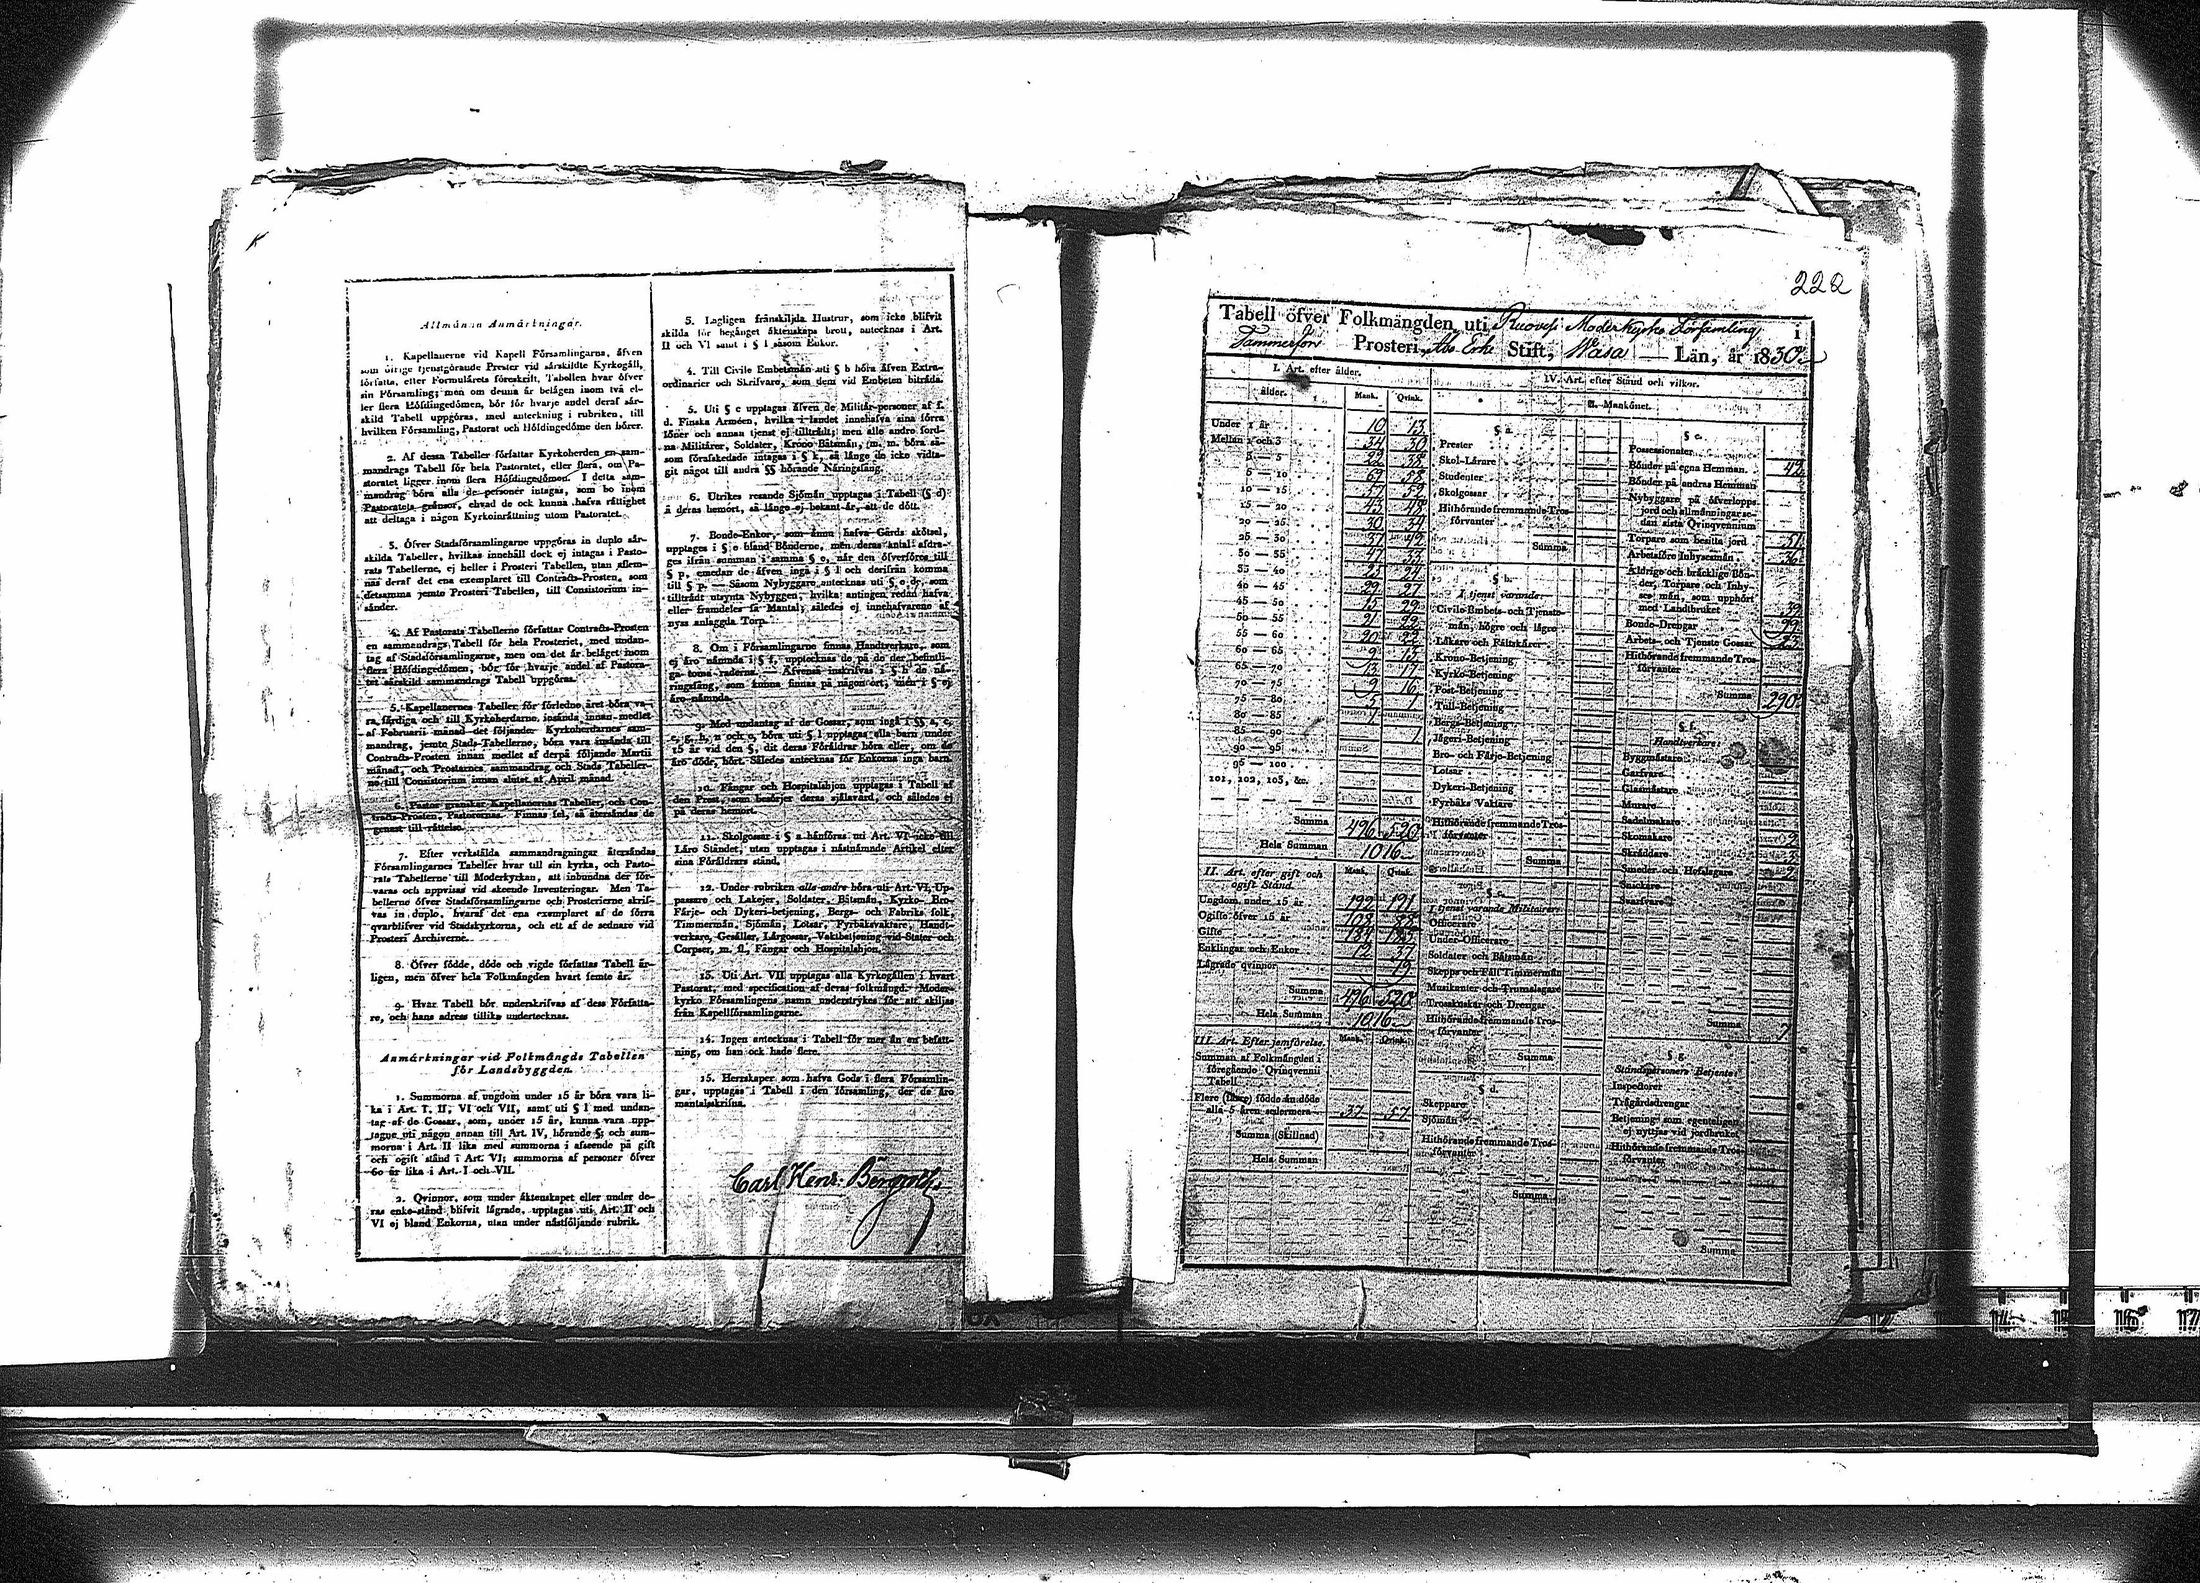 Allmänna Anmärkningar.
1. Kapellanerne vid Kapell Församlingarna, äfven
som öfrige tjenstgörande Prester vid särskildte Kyrkogäll,
författa, efter Formulärets föreskrift, Tabellen hvar öfver
sin Församling; men om denna är belägen inom två el-
ler flera Höfdingedömen, bör för hvarje andel deraf sär-
skild Tabell uppgöras, med anteckning i rubriken, till
hvilken Församling, Pastorat och Höfdingedöme den hörer.
2. Af dessa Tabeller författar Kyrkoherden en sam-
mandrags Tabell för hela Pastoratet, eller flera, om Pa-
storatet ligger inom flera Höfdingedömen. I detta sam-
mandrag böra alla de personer intagas, som bo inom
Pastoratets gränsor, ehvad de ock kunna hafva rättighet
att deltaga i någon Kyrkoinrättning utom Pastoratet.
3. Öfver Stadsförsamlingarne uppgöras in duplo sär-
skilda Tabeller, hvilkas innehåll dock ej intagas i Pasto-
rats Tabellerne, ej heller i Prosteri Tabellen, utan aflem-
nas deraf det ena exemplaret till Contracts-Prosten, som
detsamma jemte Prosteri-Tabellen, till Consistorium in-
sänder.
4. Af Pastorats Tabellerne författar Contracts-Prosten
en sammandrags Tabell för hela Prosteriet, med undan-
tag af Stadsförsamlingarne, men om det är beläget inom
flera Höfdingedömen, bör för hvarje andel af Pastora-
tet särskild sammandrags Tabell uppgöras.
5. Kapellanernes Tabeller för förledne året böra va-
ra färdiga och till Kyrkoherdarne insända innan medlet
af Februarii månad det följande; Kyrkoherdarnes sam-
mandrag, jemte Stads-Tabellerne, böra vara insända till
Contracts-Prosten innan medlet af derpå följande Martii
månad, och Prostarnes sammandrag och Stads Tabeller-
ne till Consistorium innan slutet af April månad.
6. Pastor granskar Kapellanernas Tabeller, och Con-
tracts-Prosten, Pastorernas. Finnas fel, så återsändas de
genast till rättelse.
7. Efter verkställda sammandragningar återsändas
Församlingarnes Tabeller hvar till sin kyrka, och Pasto-
rats Tabellerne till Moderkyrkan, att inbundna der för-
varas och uppvisas vid skeende Inventeringar. Men Ta-
bellerne öfver Stadsförsamlingarne och Prosterierne skrif-
vas in duplo, hvaraf det ena exemplaret af de förra
qvarblifver vid Stadskyrkorna, och ett af de sednare vid
Prosteri Archiverne.
8. Öfver födde, döde och vigde författas Tabell är-
ligen, men öfver hela Folkmängden hvart femte år.
9. Hvar Tabell bör underskrifvas af dess Författa-
re, och hans adress tillika undertecknas.
Anmärkningar vid Folkmängds Tabellen
för Landsbyggden.
1. Summorna af ungdom under 15 år böra vara li-
ka i Art. I, II, VI och VII, samt uti § l med undan-
tag af de Gossar, som, under 15 år, kunna vara upp-
tagne uti någon annan till Art. IV, hörande §; och sum-
morna i Art. II lika med summorna i afseende på gift
och ogift stånd i Art. VI; summorna af personer öfver
60 år lika i Art. I och VII.
2. Qvinnor, som under äktenskapet eller under de-
ras enke-stånd blifvit lägrade, upptagas uti Art. II och
VI ej bland Enkorna, utan under nästföljande rubrik.
3. Lagligen frånskiljda Hustrur, som icke blifvit
skilda för begånget äktenskaps brott, antecknas i Art.
II och VI samt i § l såsom Enkor.
4. Till Civile Embetsmän uti § b höra äfven Extra-
ordinarier och Skrifvare, som dem vid Embeten biträda.
5. Uti § c upptagas äfven de Militär-personer af f.
d. Finska Arméen, hvilka i landet innehafva sina förra
löner och annan tjenst ej tillträdt; men alle andre ford-
na Militärer, Soldater, Krono-Båtsmän, m. m. böra så-
som förafskedade intagas i § k, så länge de icke vidta-
git något till andra §§ hörande Näringsfång.
6. Utrikes resande Sjömän upptagas i Tabell (§ d)
å deras hemort, så länge ej bekant är, att de dött.
7. Bonde-Enkor, som ännu hafva Gårds skötsel,
upptages i § e bland Bönderne, men deras antal afdra-
ges ifrån summan i samma § e, när den öfverföres till
§ p, emedan de äfven ingå i § l och derifrån komma
till § p. — Såsom Nybyggare antecknas uti § e de, som
tillträdt utsynta Nybyggen, hvilka antingen redan hafva
eller framdeles få Mantal; således ej innehafvarene af
nyss anlaggda Torp.
8. Om i Församlingarne finnas Handtverkare, som
ej äro nämnda i § f, upptecknas de på de der befintli-
ga toma raderna. — Äfvenså inskrifvas i § h de nä-
ringsfång, som kunna finnas på någon ort, men i § ej
äro nämnda.
9. Med undantag af de Gossar, som ingå i §§ a, c,
e, g, h, n och o, böra uti § l upptagas alla barn under
15 år vid den §, dit deras Föräldrar höra eller, om de
äro döde, hört. Således antecknas för Enkorna inga barn.
10. Fångar och Hospitalshjon upptagas i Tabell af
den Prest, som besörjer deras själavård, och således ej
på deras hemort.
11. Skolgossar i § a hänföras uti Art. VI icke till
Läro Ståndet, utan upptagas i nästnämnde Artikel efter
sina Föräldrars stånd.
12. Under rubriken alle andre höra uti Art. VI, Up-
passare och Lakejer, Soldater, Båtsmän, Kyrko- Bro-
Färje- och Dykeri-betjening, Bergs- och Fabriks folk,
Timmermän, Sjömän, Lotsar, Fyrbåksvaktare, Handt-
verkare, Gesäller, Lärgossar, Vaktbetjening vid Stater och
Corpser, m. fl., Fångar och Hospitalshjon.
13. Uti Art. VII upptagas alla Kyrkogällen i hvart
Pastorat, med specification af deras folkmängd. Moder-
kyrko Församlingens namn understrykes för att skiljas
från Kapellförsamlingarne.
14. Ingen antecknas i Tabell för mer än en befatt-
ning, om han ock hade flere.
15. Herrskaper som hafva Gods i flera Församlin-
gar, upptagas i Tabell i den församling, der de äro
mantalsskrifna.
Carl Henr. Bergroth
222
Tabell öfver Folkmängden uti Ruovesi Moderkyrko Församling i
Tammerfors Prosteri, Åbo Erke Stift, Wasa — Län, år 1830.
I. Art. efter ålder.
ålder. Mank. Qvink.
Under 1 år 10 13
Mellan 1 och 3 34 30
3 — 5 22 38
5 — 10 69 58
10 — 15 57 59
15 — 20 43 48
20 — 25 30 34
25 — 30 37 42
30 — 35 47 33
35 — 40 25 27
40 — 45 29 27
45 — 50 15 29
50 — 55 21 22
55 — 60 20 22
60 — 65 9 13
65 — 70 13 17
70 — 75 9 16
75 — 80 5 1
80 — 85 1
85 — 90 1
90 — 95
95 — 100
101, 102, 103, &c.
Summa 496 520
Hela Summan 1016
II. Art. efter gift och
ogift Stånd. Mank. Qvink.
Ungdom under 15 år 192 191
Ogifte öfver 15 år 108 88
Gifte 184 185
Enklingar och Enkor 12 37
Lägrade qvinnor 19
Summa 496 520
Hela Summan 1016
III. Art. Efter jemförelse. Mank. Qvink.
Summan af Folkmängden i
föregående Qvinqvennii
Tabell
Flere (färre) födde än döde
alla 5 åren sedermera 37 57
Summa (Skillnad)
Hela Summan
IV. Art. efter Stånd och vilkor.
A. Mankönet.
§ a.
Prester
Skol-Lärare
Studenter
Skolgossar
Hithörande fremmande Tros-
förvanter
Summa
§ b.
I tjenst varande:
Civile Embets- och Tjenste-
män, högre och lägre
Läkare och Fältskärer
Krono-Betjening
Kyrko-Betjening
Post-Betjening
Tull-Betjening
Bergs-Betjening
Jägeri-Betjening
Bro- och Färje-Betjening
Lotsar
Dykeri-Betjening
Fyrbåks Vaktare
Hithörande fremmande Tros-
förvanter
Summa
§ c.
I tjenst varande Militairer:
Officerare
Under-Officerare
Soldater och Båtsmän
Skepps och Fält Timmermän
Musikanter och Trumslagare
Trosskuskar och Drengar
Hithörande fremmande Tros-
förvanter
Summa
§ d.
Skeppare
Sjömän
Hithörande fremmande Tros-
förvanter
Summa
§ e.
Possessionater
Bönder på egna Hemman 42
Bönder på andras Hemman
Nybyggare på öfverlopps-
jord och allmänningar se-
dan sista Qvinqvennium
Torpare som besitta jord 51
Arbetsföre Inhysesmän 36
Äldrige och bräcklige Bön-
der, Torpare och Inhy-
ses män, som upphört
med Landtbruket 39
Bonde-Drengar 99
Arbets- och Tjenste Gossar 23
Hithörande fremmande Tros-
förvanter
Summa 290
§ f.
Handtverkare:
Byggmästare
Garfvare
Glasmästare
Murare
Sadelmakare
Skomakare 2
Skräddare 3
Smeder och Hofslagare 2
Snickare
Svarfvare
Summa 7
§ g.
Ståndspersoners Betjente:
Inspector
Trägårdsdrengar
Betjening som egenteligen
ej nyttjas vid jordbruket
Hithörande fremmande Tros-
förvanter
Summa
14 15 16 17